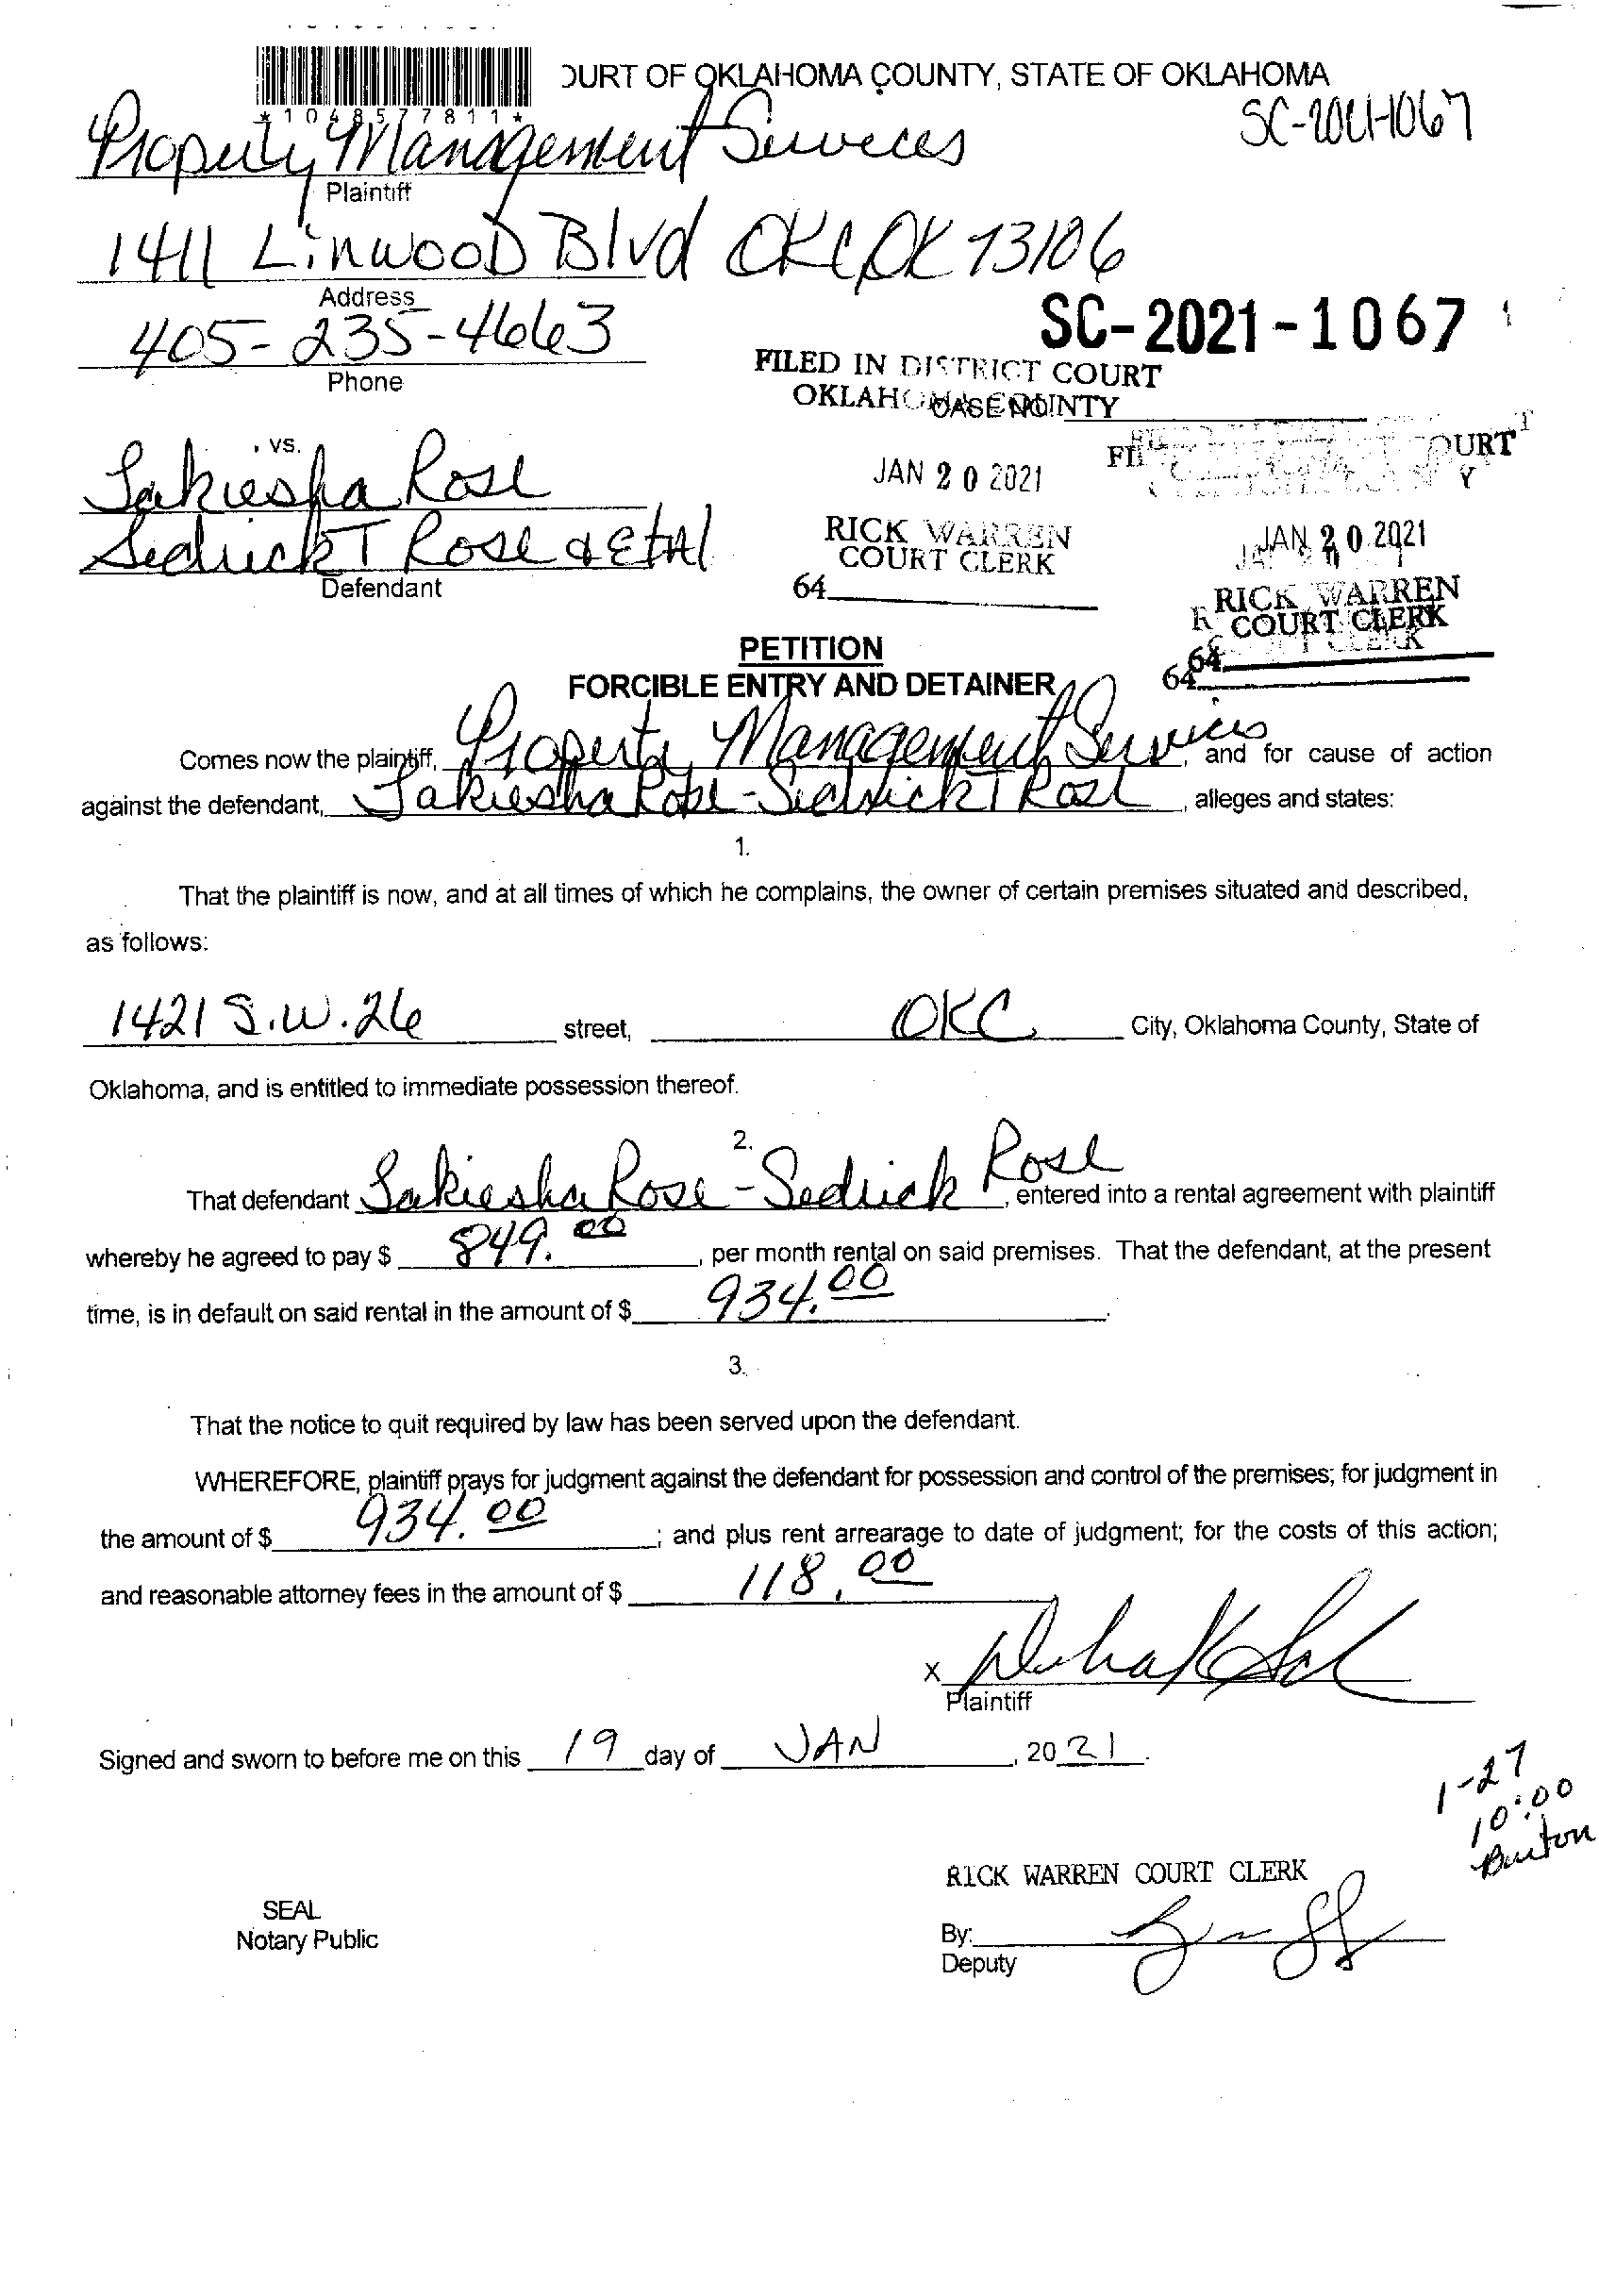 OURT OF OKLAHOMA COUNTY, STATE OF OKLAHOMA
*1048577811*
SC-2021-1067
Property Management Services
Plaintiff
1411 Linwood Blvd OKC OK 73106
Address
405-235-4663
Phone
SC-2021-1067
FILED IN DISTRICT COURT
OKLAHOMA COUNTY
CASE NO.
vs.
Lakiesha Rose
Sedrick T Rose & EtAl
Defendant
JAN 20 2021
RICK WARREN
COURT CLERK
64
COURT
JAN 20 2021
RICK WARREN
COURT CLERK
64
64
PETITION
FORCIBLE ENTRY AND DETAINER
Comes now the plaintiff, Property Management Services, and for cause of action
against the defendant, Lakiesha Rose - Sedrick T Rose, alleges and states:
1.
That the plaintiff is now, and at all times of which he complains, the owner of certain premises situated and described,
as follows:
1421 S.W. 26 street, OKC City, Oklahoma County, State of
Oklahoma, and is entitled to immediate possession thereof.
2.
That defendant Lakiesha Rose - Sedrick Rose, entered into a rental agreement with plaintiff
whereby he agreed to pay $ 849.00, per month rental on said premises. That the defendant, at the present
time, is in default on said rental in the amount of $ 934.00.
3.
That the notice to quit required by law has been served upon the defendant.
WHEREFORE, plaintiff prays for judgment against the defendant for possession and control of the premises; for judgment in
the amount of $ 934.00; and plus rent arrearage to date of judgment; for the costs of this action;
and reasonable attorney fees in the amount of $ 118.00
x
Plaintiff
Signed and sworn to before me on this 19 day of JAN, 2021.
1-27
10:00
Burton
RICK WARREN COURT CLERK
SEAL
Notary Public
By:
Deputy